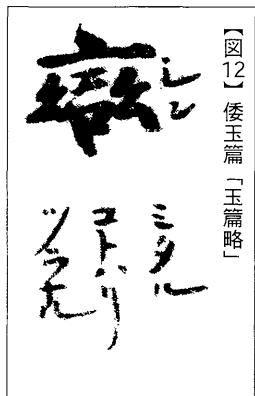 【図12】 倭玉篇「玉篇略」
レン
ミタル
コトハリ
ツラナル